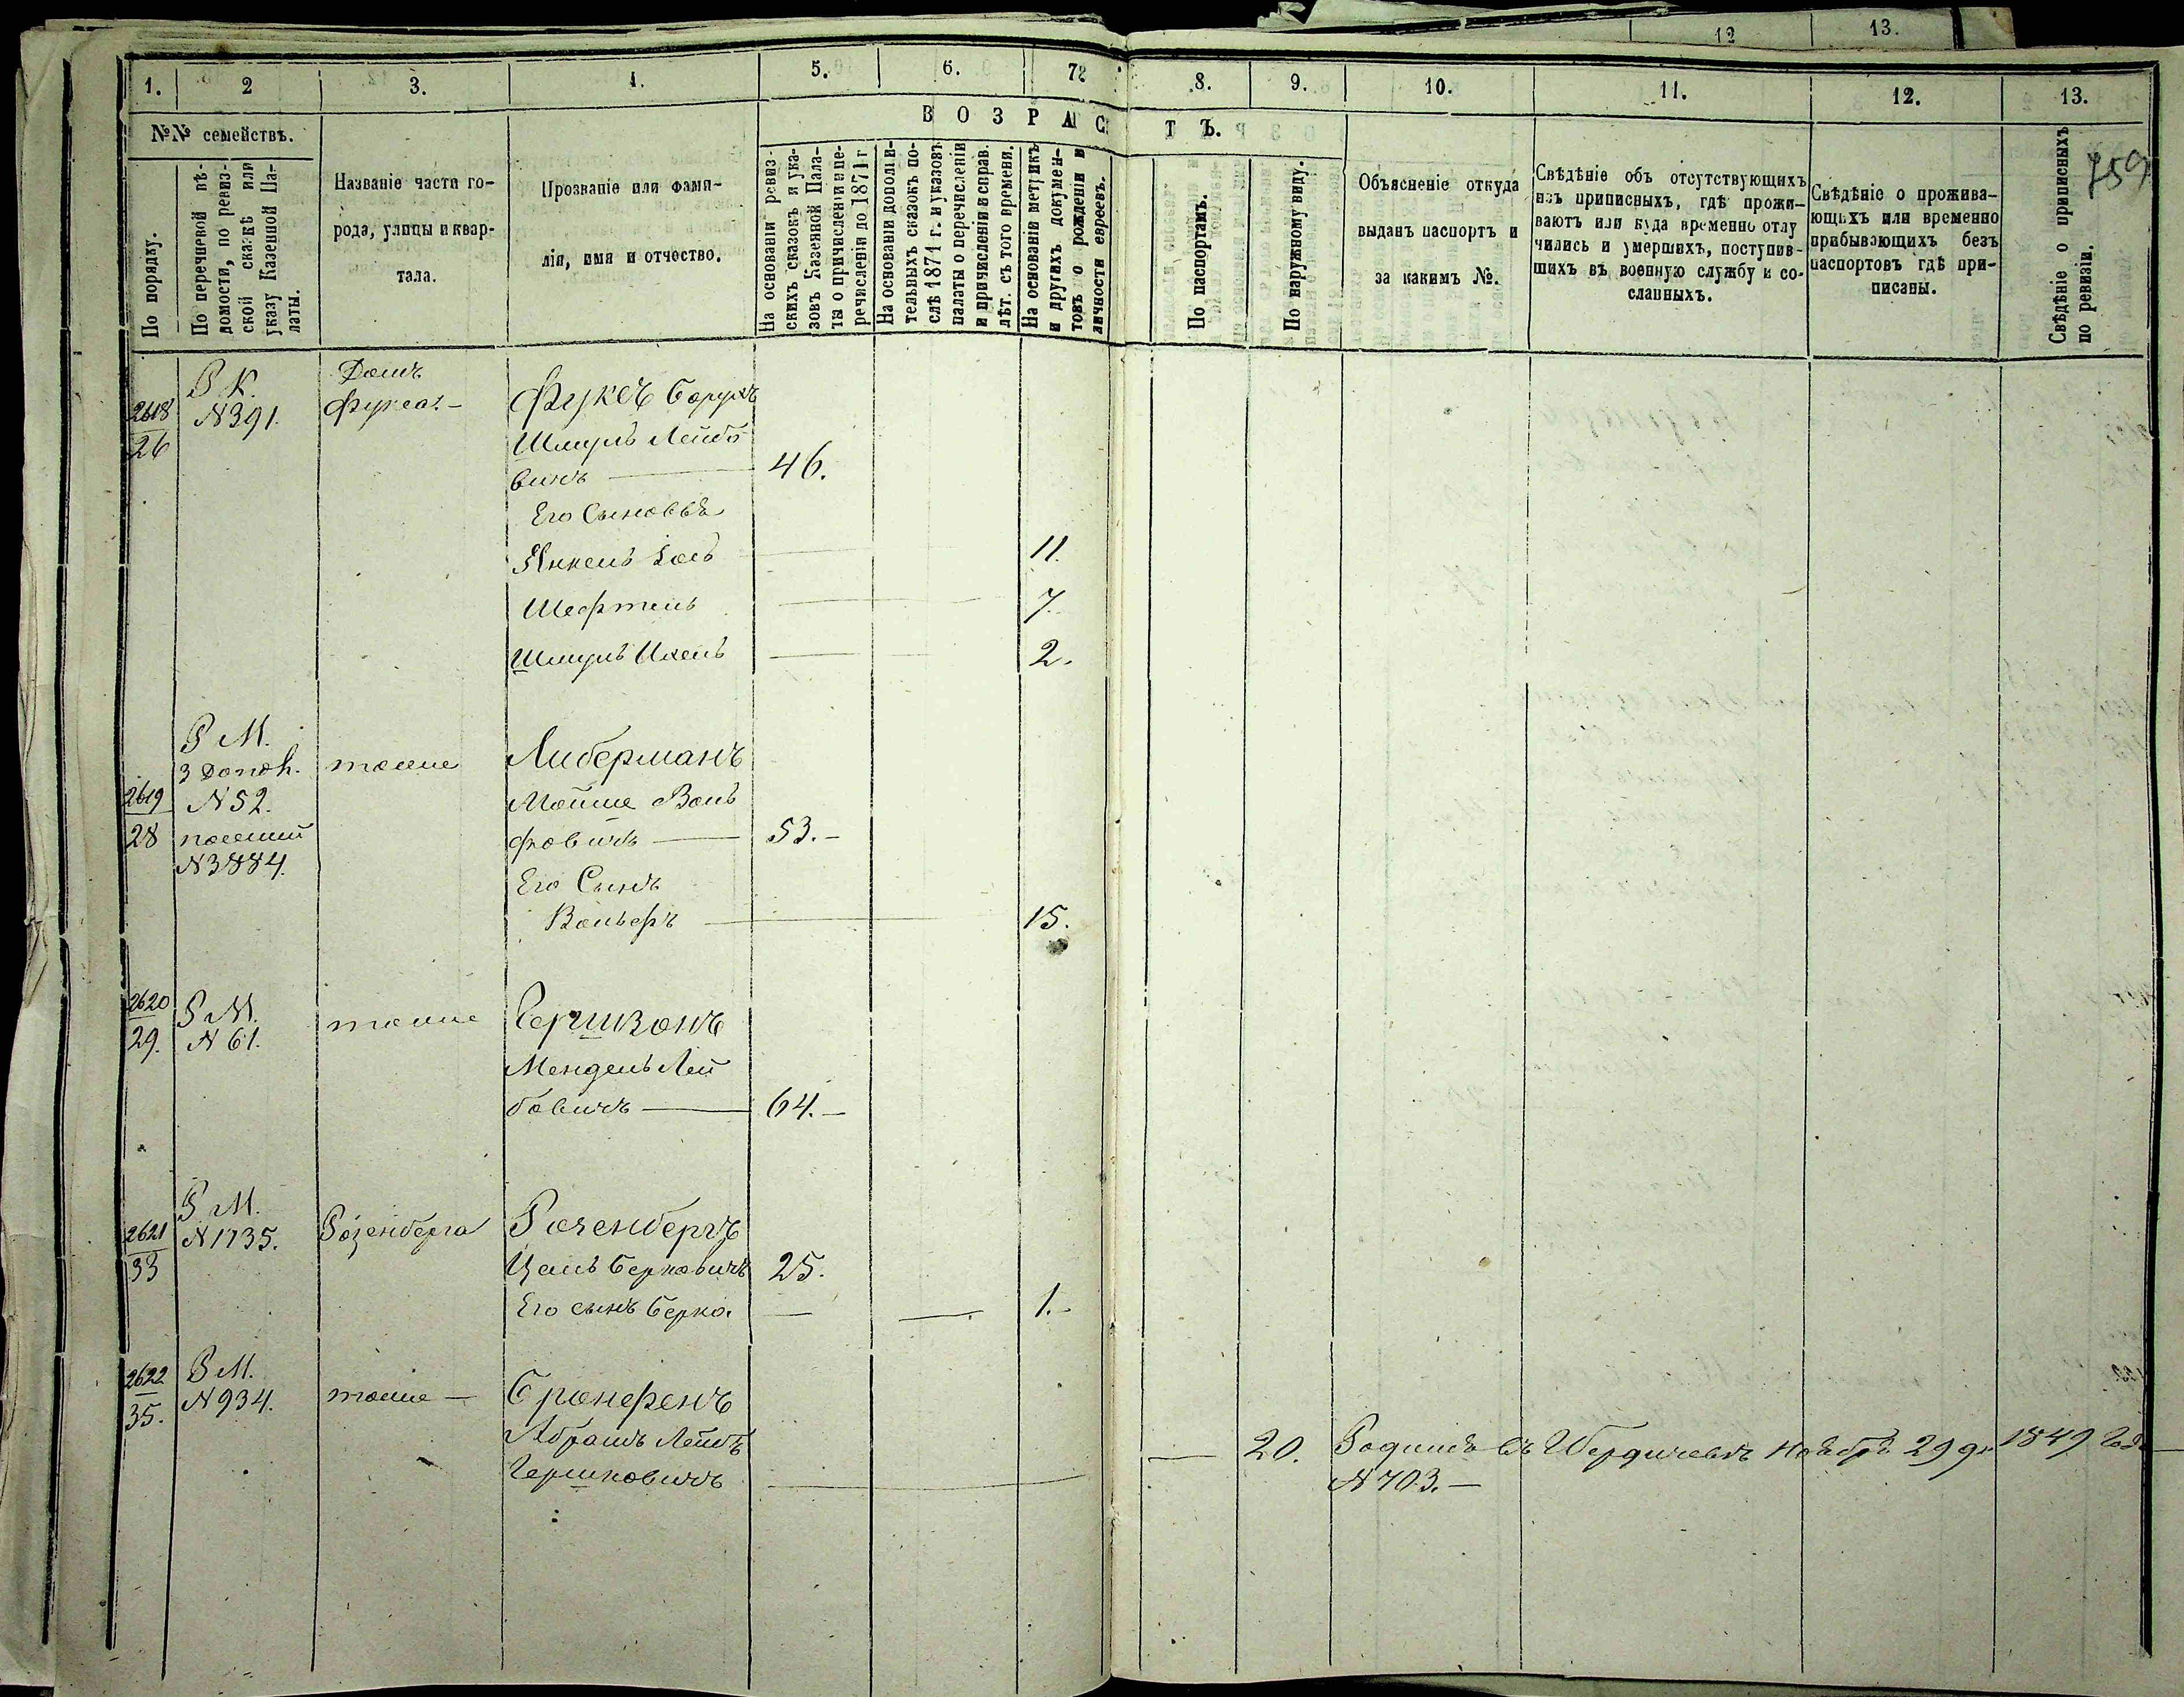 12 13.
1. 2 3. 4. 5. 6. 7 8. 9. 10. 11. 12. 13.
В О З Р А С Т Ъ.
759
№№ семействъ.
По порядку.
По перечневой вѣ-
домости, по ревиз-
ской сказкѣ или
указу Казенной Па-
латы.
Названіе части го-
рода, улицы и квар-
тала.
Прозваніе или фами-
лія, имя и отчество.
На основаніи ревиз-
скихъ сказокъ и ука-
зовъ Казенной Пала-
ты о причисленіи и пе-
речисленіи до 1871 г
На основаніи дополни-
тельныхъ сказокъ по-
слѣ 1871 г. и указовъ
палаты о перечисленіи
и причисленіи и справ.
лѣт. съ того времени.
На основаніи метрикъ
и другихъ докумен-
товъ о рожденіи и
личности евреевъ.
По паспортамъ.
По наружному виду.
Объясненіе откуда
выданъ паспортъ и
за какимъ №.
Свѣдѣніе объ отсутствующихъ
изъ приписныхъ, гдѣ прожи-
ваютъ или куда временно отлу
чились и умершихъ, поступив-
шихъ въ военную службу и со-
сланныхъ.
Свѣдѣніе о прожива-
ющихъ или временно
прибывающихъ безъ
паспортовъ гдѣ при-
писаны.
Свѣдѣніе о приписныхъ
по ревизіи.
2618
26
Р К.
N 391.
Домъ
Фукса. –
Фуксъ Борухъ
Шмуль Лейбо
вичъ — 46.
Его Сыновья
Янкель Іось — 11.
Шефтель — 7.
Шмуль Ихель — 2.
2619
28
Р М.
3 Допол.
N 52.
N 3884.
тоже
Либерманъ
Мойше Воль
фовичъ — 53. –
Его Сынъ
Вольфъ — 15.
2620
29.
Р М.
N 61.
тоже
Гершзонъ
Мендель Лей
бовичъ — 64. –
2621
33
Р М.
N 1735.
Розенберга
Розенбергъ
Цаль Берковичъ 25.
Его сынъ Берко. — — 1. –
2622
35.
Р М.
N 934.
тоже –
Бронфенъ
Абрамъ Лейбъ
Гершковичъ — — 20.
Родился въ Бердичевѣ Ноября 29 дн 1849 Года
N 703. –